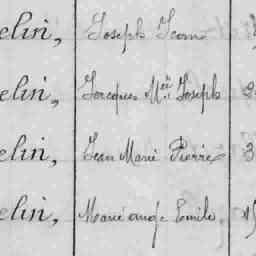 elin, Joseph Jean
elin, Jacques Mie Joseph 2
elin, Jean Marie Pierre 3
elin, Marie ange Emile